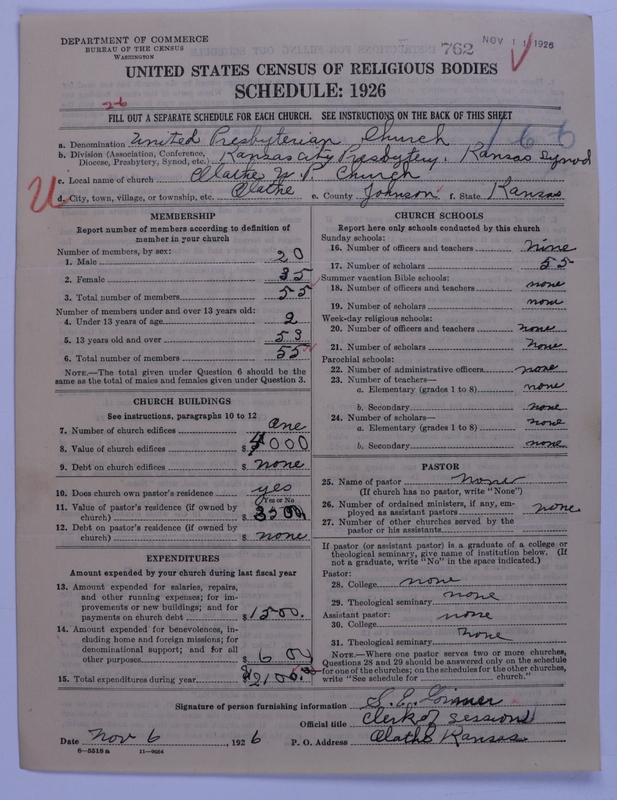 DEPARTMENT OF COMMERCE
BUREAU OF THE CENSUS
WASHINGTON
762
NOV 11 1926
UNITED STATES CENSUS OF RELIGIOUS BODIES
SCHEDULE: 1926
26
FILL OUT A SEPARATE SCHEDULE FOR EACH CHURCH. SEE INSTRUCTIONS ON THE BACK OF THIS SHEET
166
a. Denomination United Presbyterian Church
b. Division (Association, Conference, Diocese, Presbytery, Synod, etc.) Kansas City Presbytery, Kansas Synod
c. Local name of church Olathe U. P. Church
U
d. City, town, village, or township, etc. Olathe e. County Johnson f. State Kansas
MEMBERSHIP
Report number of members according to definition of
member in your church
Number of members, by sex:
1. Male 20
2. Female 35
3. Total number of members 55
Number of members under and over 13 years old:
4. Under 13 years of age 2
5. 13 years old and over 53
6. Total number of members 55
NOTE.—The total given under Question 6 should be
same as the total of males and females given under Question 3.
CHURCH BUILDINGS
See instructions, paragraphs 10 to 12
7. Number of church edifices one
8. Value of church edifices $ 4000
9. Debt on church edifices $ none
10. Does church own pastor's residence yes
(Yes or No)
11. Value of pastor's residence (if owned by
church) $ 3500
12. Debt on pastor's residence (if owned by
church) $ none
EXPENDITURES
Amount expended by your church during last fiscal year
13. Amount expended for salaries, repairs,
and other running expenses; for im-
provements or new buildings; and for
payments on church debt $ 1500.
14. Amount expended for benevolences, in-
cluding home and foreign missions; for
denominational support; and for all
other purposes $ 600
15. Total expenditures during year $ 2100.
CHURCH SCHOOLS
Report here only schools conducted by this church
Sunday schools:
16. Number of officers and teachers nine
17. Number of scholars 55
Summer vacation Bible schools:
18. Number of officers and teachers none
19. Number of scholars none
Week-day religious schools:
20. Number of officers and teachers none
21. Number of scholars none
Parochial schools:
22. Number of administrative officers none
23. Number of teachers—
a. Elementary (grades 1 to 8) none
b. Secondary none
24. Number of scholars—
a. Elementary (grades 1 to 8) none
b. Secondary none
PASTOR
25. Name of pastor none
(If church has no pastor, write "None")
26. Number of ordained ministers, if any, em-
ployed as assistant pastors none
27. Number of other churches served by the
pastor or his assistants
If pastor (or assistant pastor) is a graduate of a college or
theological seminary, give name of institution below. (If
not a graduate, write "No" in the space indicated.)
Pastor:
28. College none
29. Theological seminary none
Assistant pastor:
30. College none
31. Theological seminary none
NOTE.—Where one pastor serves two or more churches,
Questions 28 and 29 should be answered only on the schedule
for one of the churches; on the schedules for the other churches,
write "See schedule for church."
Signature of person furnishing information S. E.
Official title Clerk of session
Date Nov 6, 1926 P. O. Address Olathe Kansas
8—5518 a 11—9054